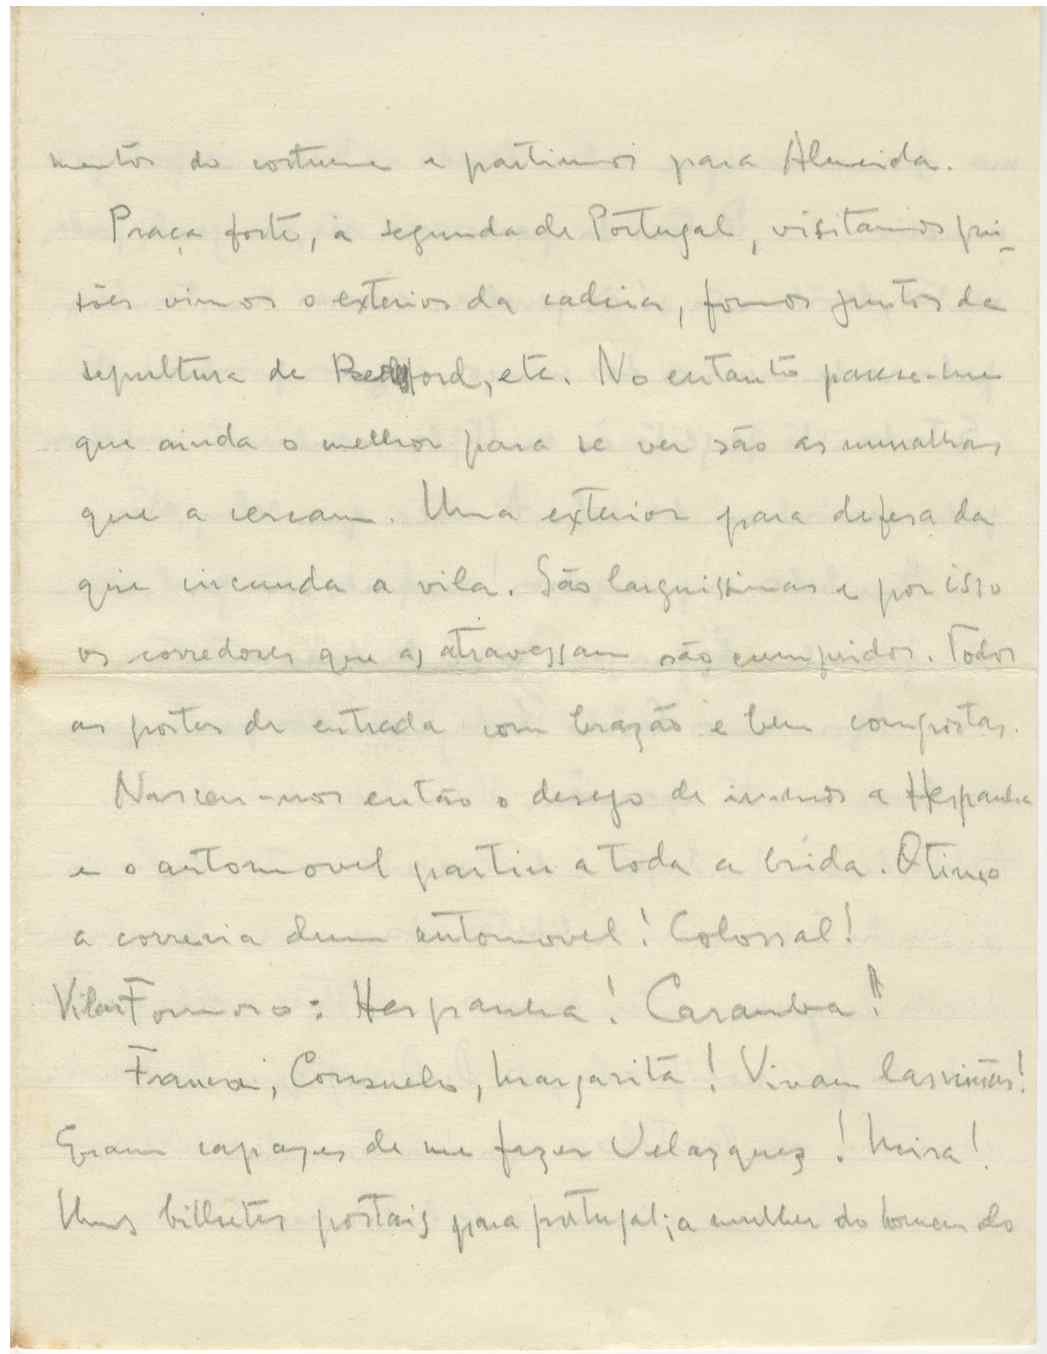 mentos do costume e partimos para Almeida.
Praça forte, a segunda de Portugal, visitamos pri-
sões vimos o exterior da cadeia, fomos juntos da
sepultura de Beresford, etc. No entanto parece-me
que ainda o melhor para se ver são as muralhas
que a cercam. Uma exterior para defesa da
que circunda a vila. São larguissimas e por isso
os corredores que as atravessam são cumpridos. Todos
as portas de entrada com brazão e bem compostas.
Nasceu-nos então o desejo de irmos a Hespanha
e o automovel partiu a toda a brida. Otimo
a correria dum automovel! Colossal!
Vilar Formoso: Hespanha! Caramba!!
Consuelo, Margarita! Vivam las niñas!
Eram capazes de me fazer Velazquez! Mira!
Uns bilhetes postais para portugal; a mulher do homem do